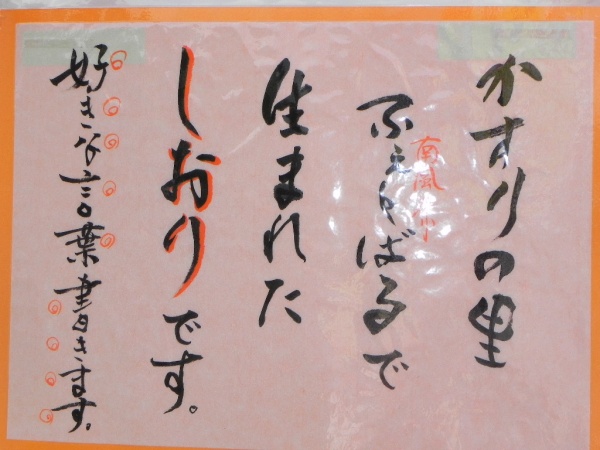 かすりの里
ふぇーばるで
南風原
生まれた
しおりです。
好きな言葉書きます。